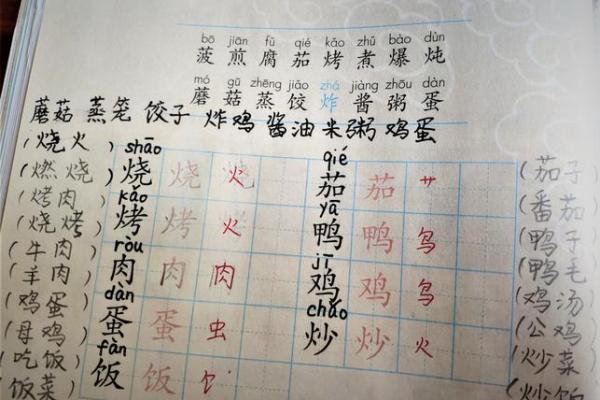 bō jiān fǔ qié kǎo zhǔ bào dùn
菠 煎 腐 茄 烤 煮 爆 炖
mó gū zhēng jiǎo zhá jiàng zhōu dàn
蘑 菇 蒸 饺 炸 酱 粥 蛋
蘑菇 蒸笼 饺子 炸鸡 酱油 米粥 鸡蛋
(烧火) shāo qié
(燃烧) 烧 烧 火 茄 茄 艹 (茄子)
(烤肉) kǎo yā (番茄)
(烧烤) 烤 烤 火 鸭 鸭 鸟 (鸭子)
(牛肉) ròu jī (鸭毛)
(羊肉) 肉 肉 肉 鸡 鸡 鸟 (鸡汤)
(鸡蛋) dàn chǎo (公鸡)
(母鸡) 蛋 蛋 虫 炒 炒 火 (炒菜)
(吃饭) fàn (炒饭
(饭菜) 饭 饭 饣